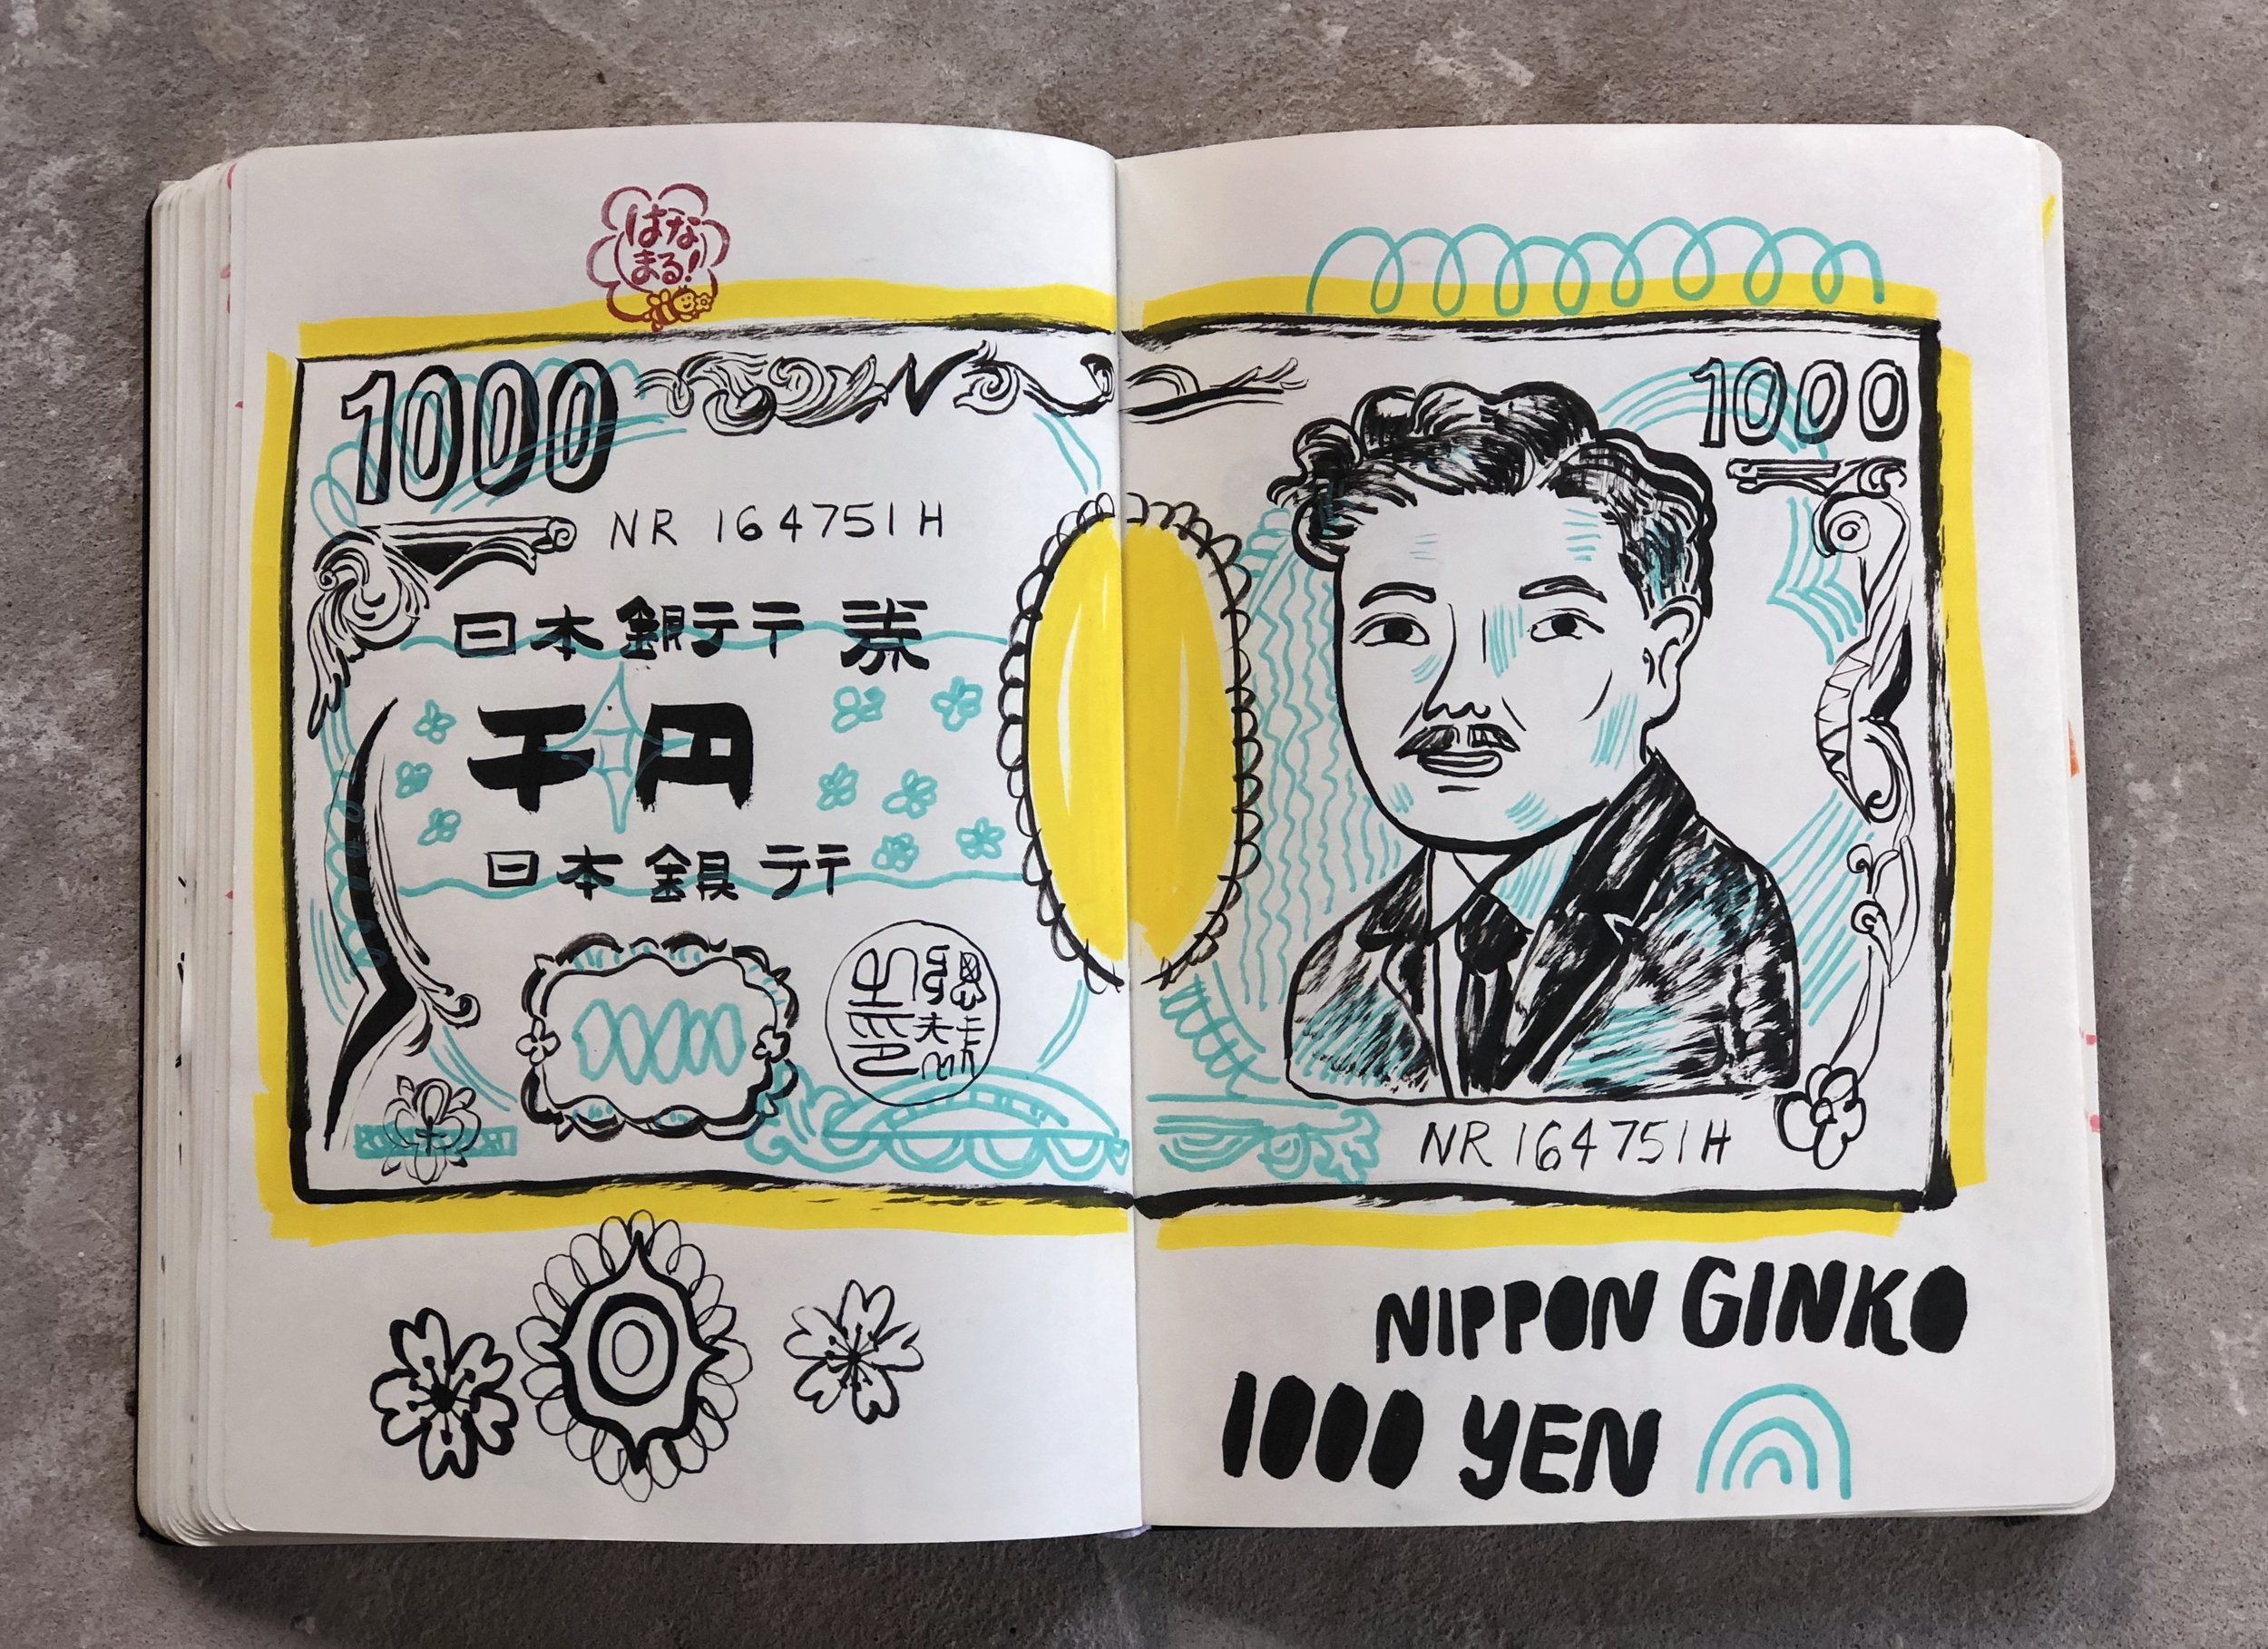 はな
まる!
1000
NR 164751H
日本銀行券
千円
日本銀行
1000
NR 164751H
NIPPON GINKO
1000 YEN